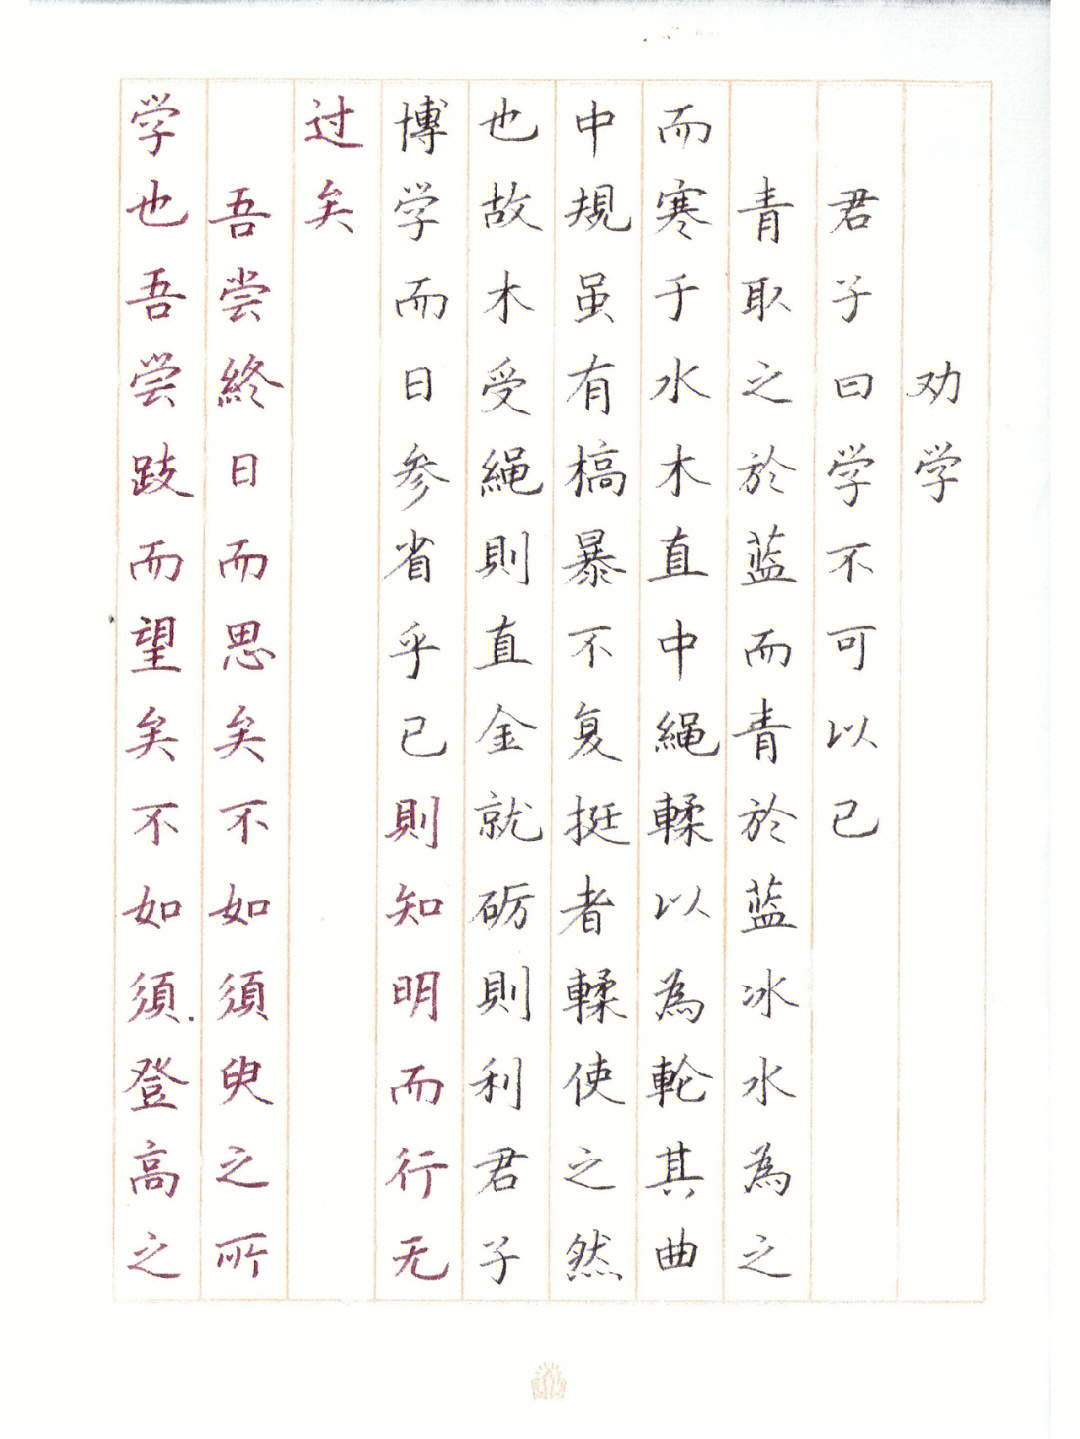 劝学
君子曰学不可以已
青取之於蓝而青於蓝冰水為之
而寒于水木直中繩輮以為輪其曲
中規虽有槁暴不复挺者輮使之然
也故木受繩則直金就砺則利君子
博学而日参省乎己則知明而行无
过矣
吾尝終日而思矣不如須臾之所
学也吾尝跂而望矣不如須登高之